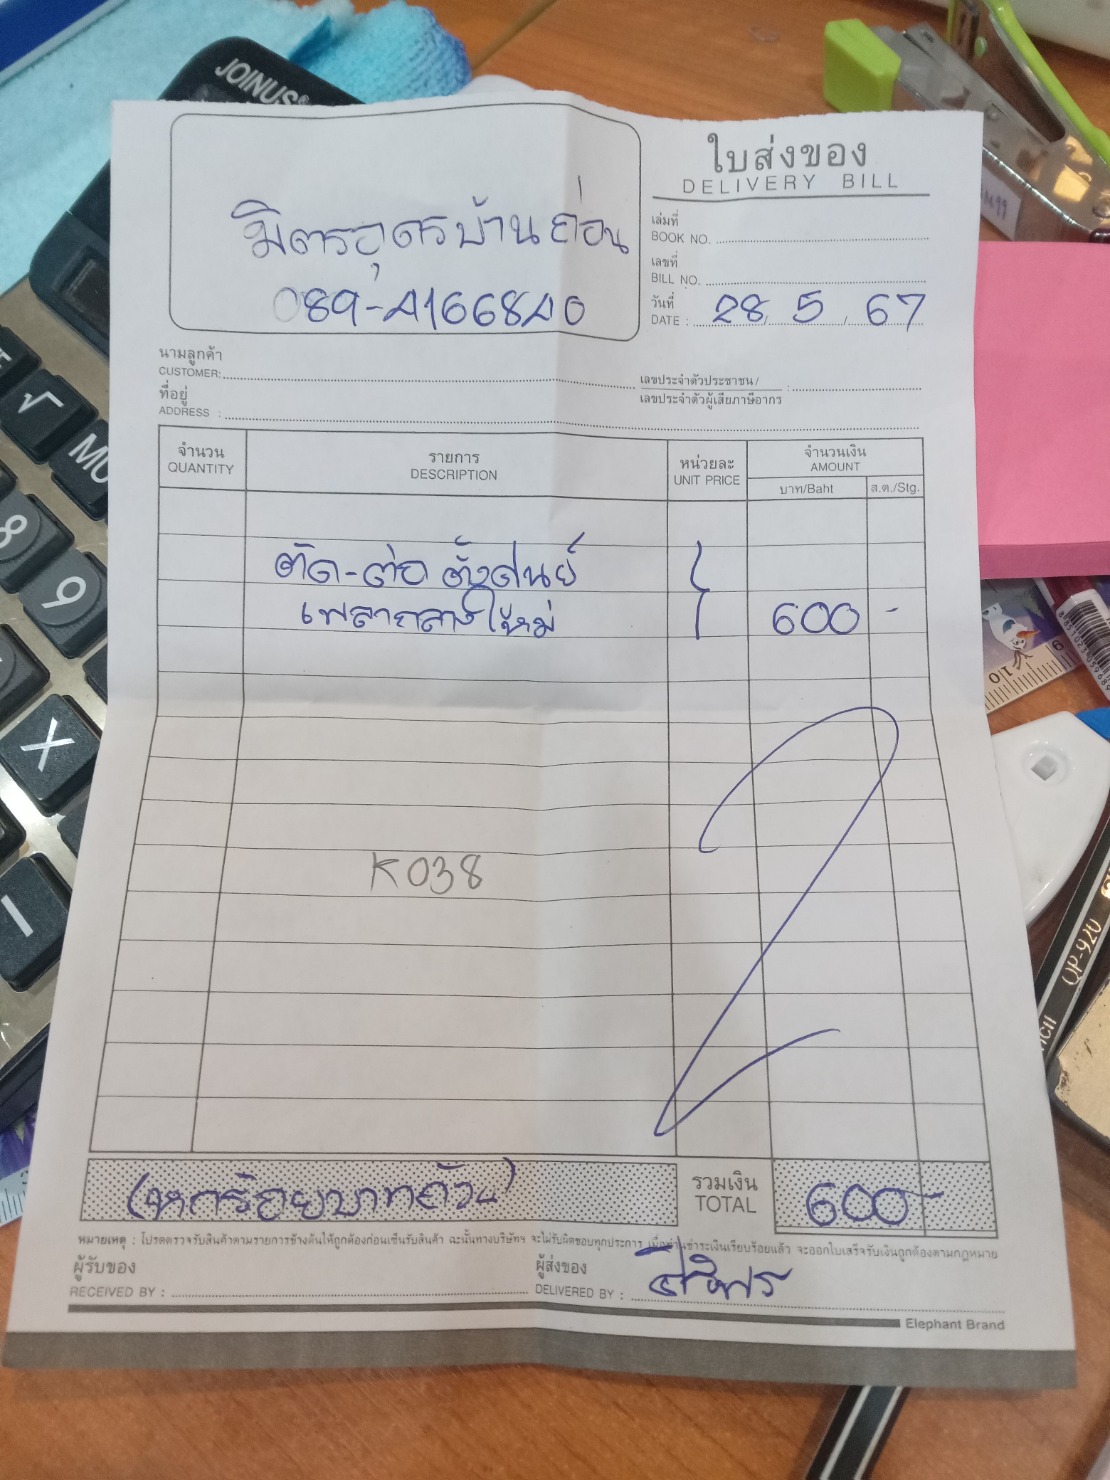 JOINUS
ใบส่งของ
DELIVERY BILL
มิตรอุดรบ้านถ่อน
089-4166840
เล่มที่
BOOK NO.
เลขที่
BILL NO.
วันที่
DATE : 28, 5, 67
นามลูกค้า
CUSTOMER:
เลขประจำตัวประชาชน/ :
เลขประจำตัวผู้เสียภาษีอากร
ที่อยู่
ADDRESS :
จำนวน รายการ หน่วยละ จำนวนเงิน
QUANTITY DESCRIPTION UNIT PRICE AMOUNT
บาท/Baht ส.ต./Stg.
ตัด-ต่อ ตั้งศูนย์
เพลากลางใหม่ 600 -
K038
(หกร้อยบาทถ้วน) รวมเงิน 600-
TOTAL
หมายเหตุ : โปรดตรวจรับสินค้าตามรายการข้างต้นให้ถูกต้องก่อนเซ็นรับสินค้า ฉะนั้นทางบริษัทฯ จะไม่รับผิดชอบทุกประการ เมื่อท่านชำระเงินเรียบร้อยแล้ว จะออกใบเสร็จรับเงินถูกต้องตามกฎหมาย
ผู้รับของ ผู้ส่งของ
RECEIVED BY : DELIVERED BY :
Elephant Brand
√
MU
8
9
X
QP-920